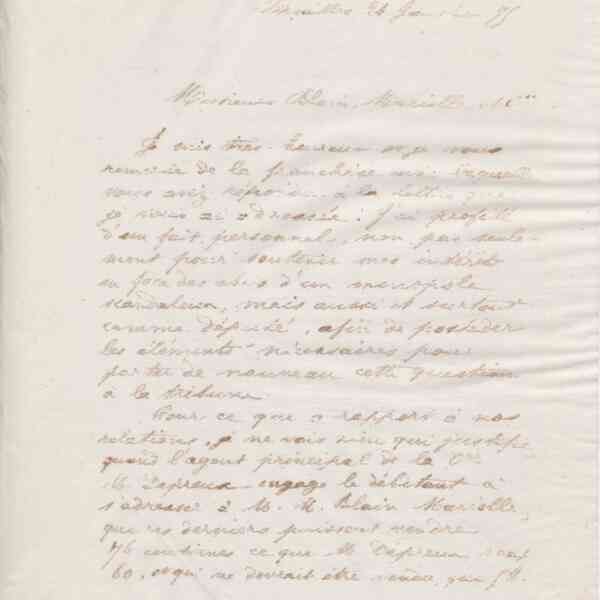 Versailles 26 Janvier 75
Messieurs Blain, Marielle et Cie
Je suis très heureux et je vous
remercie de la franchise avec laquelle
vous avez répondu à la lettre que
je vous ai adressée. J'ai profité
d'un fait personnel, non pas seule-
ment pour soutenir mes intérêts
en face des abus d'un monopole
scandaleux, mais aussi et surtout
comme député, afin de posséder
les éléments nécessaires pour
porter de nouveau cette question
à la tribune.
Pour ce que a rapport à nos
relations, je ne vois rien qui justifie
quand l'agent principal de la Cie
M. Depreux engage le débitant à
s'adresser à M. M. Blain Marielle,
que ces derniers puissent vendre
76 centimes ce que M Depreux vend
60, et qui ne devrait être vendu, que